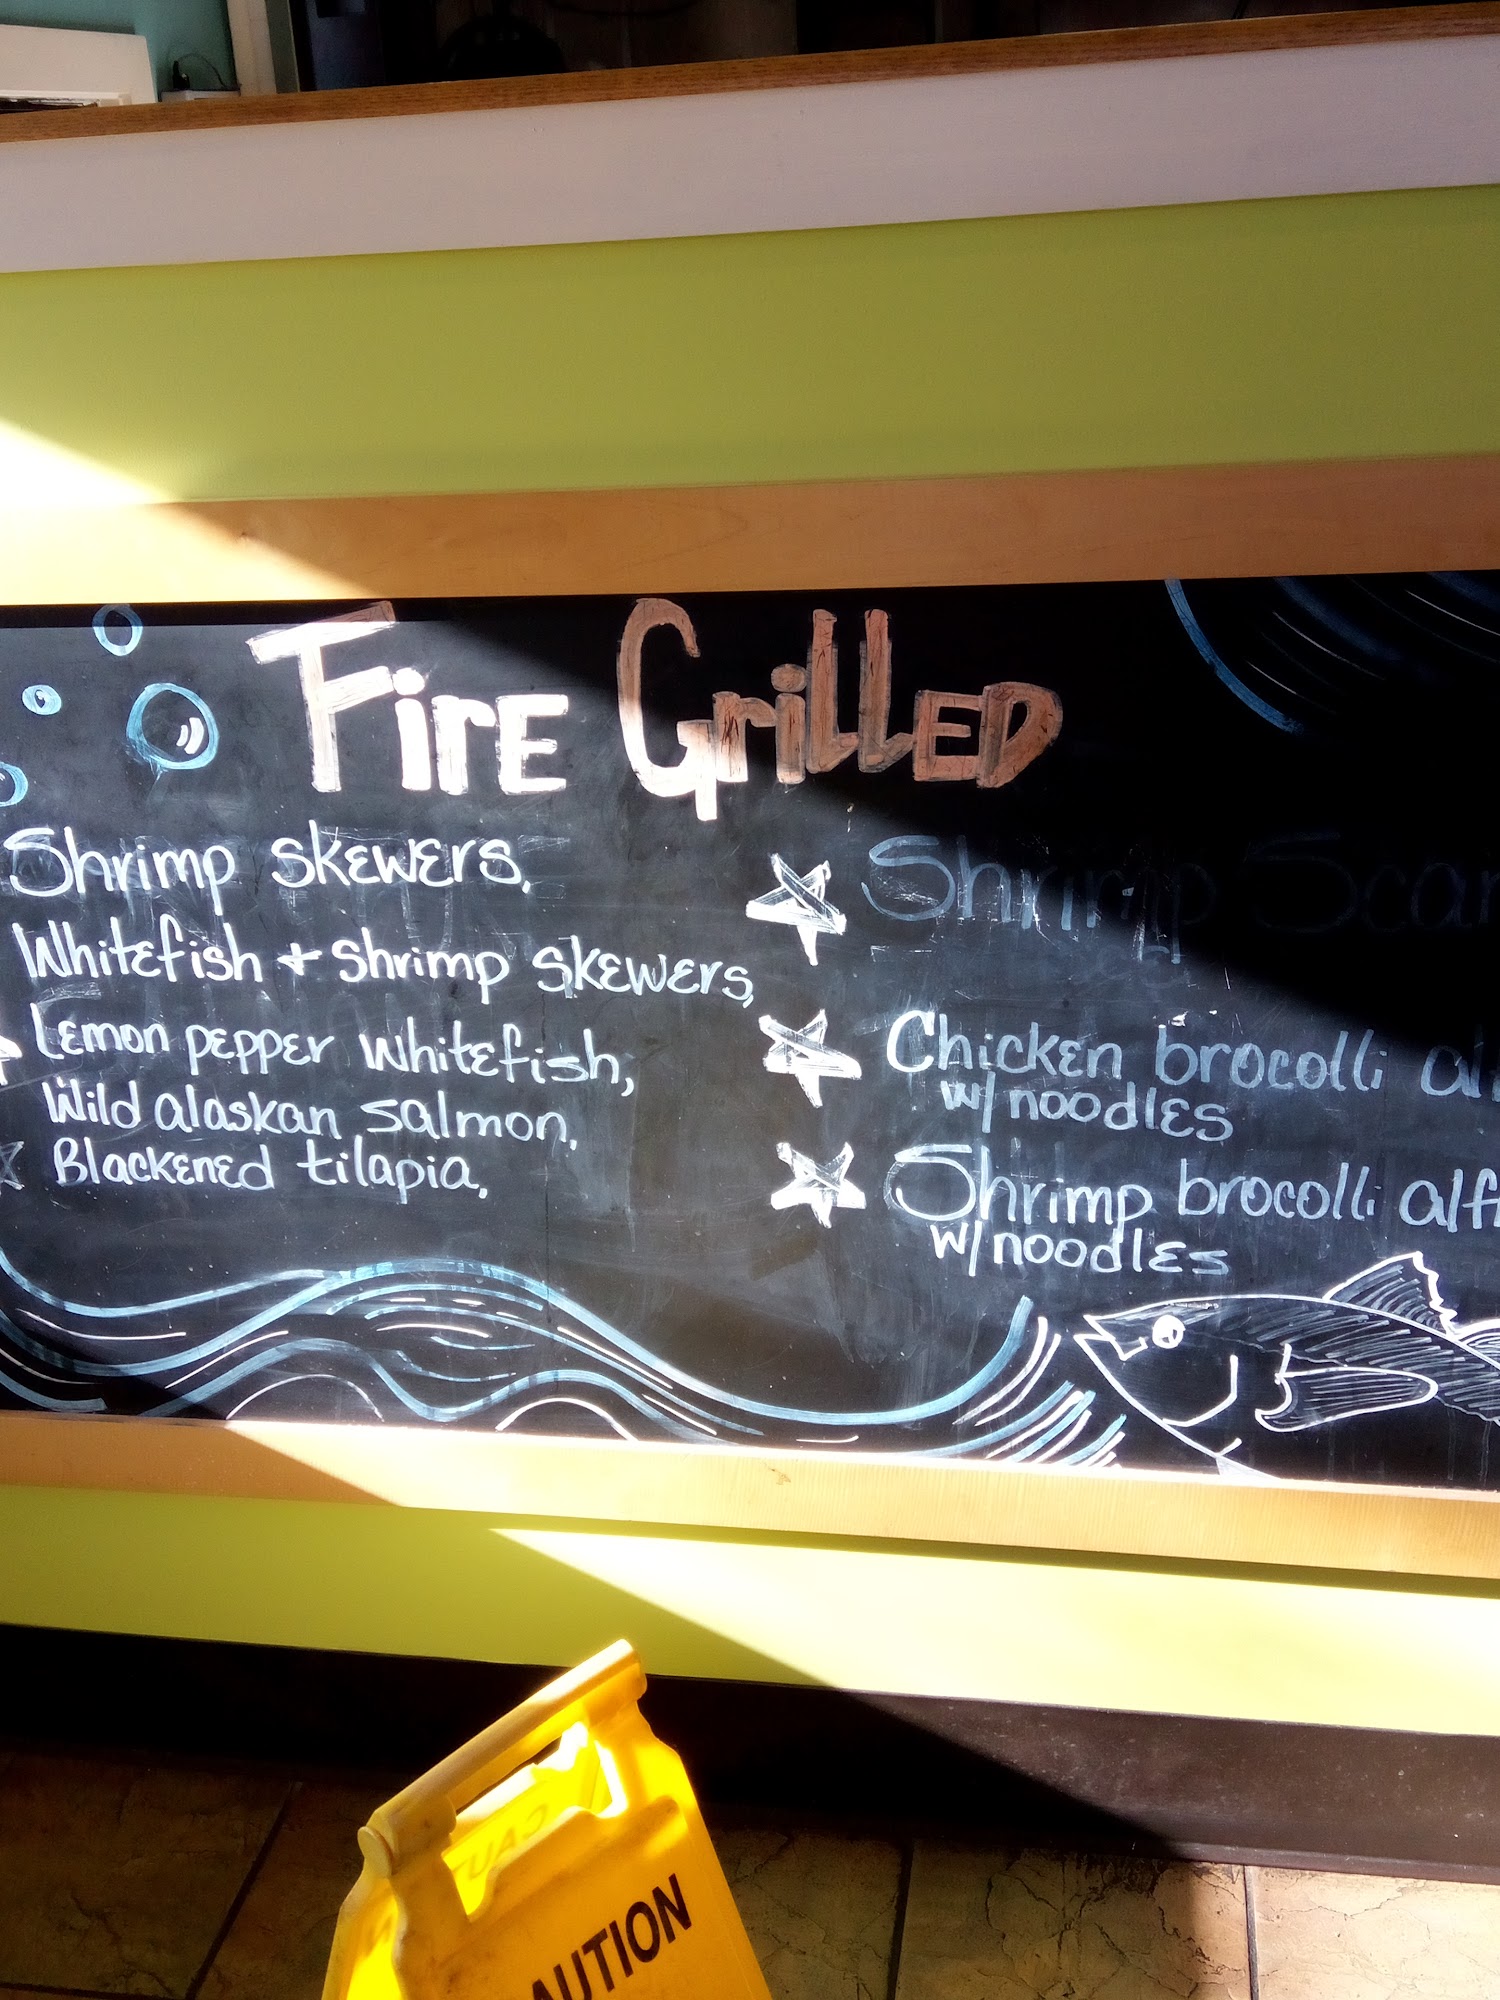 FirE GrillED
Shrimp skEwErs,
WhitEfish + shrimp skEwErs,
LEmon pEppEr whitEfish,
Wild alaskan salmon,
BlackEnEd tilapia,
Shrimp
ChickEn brocolli
w/noodlEs
Shrimp brocolli
w/noodlEs
AUTION